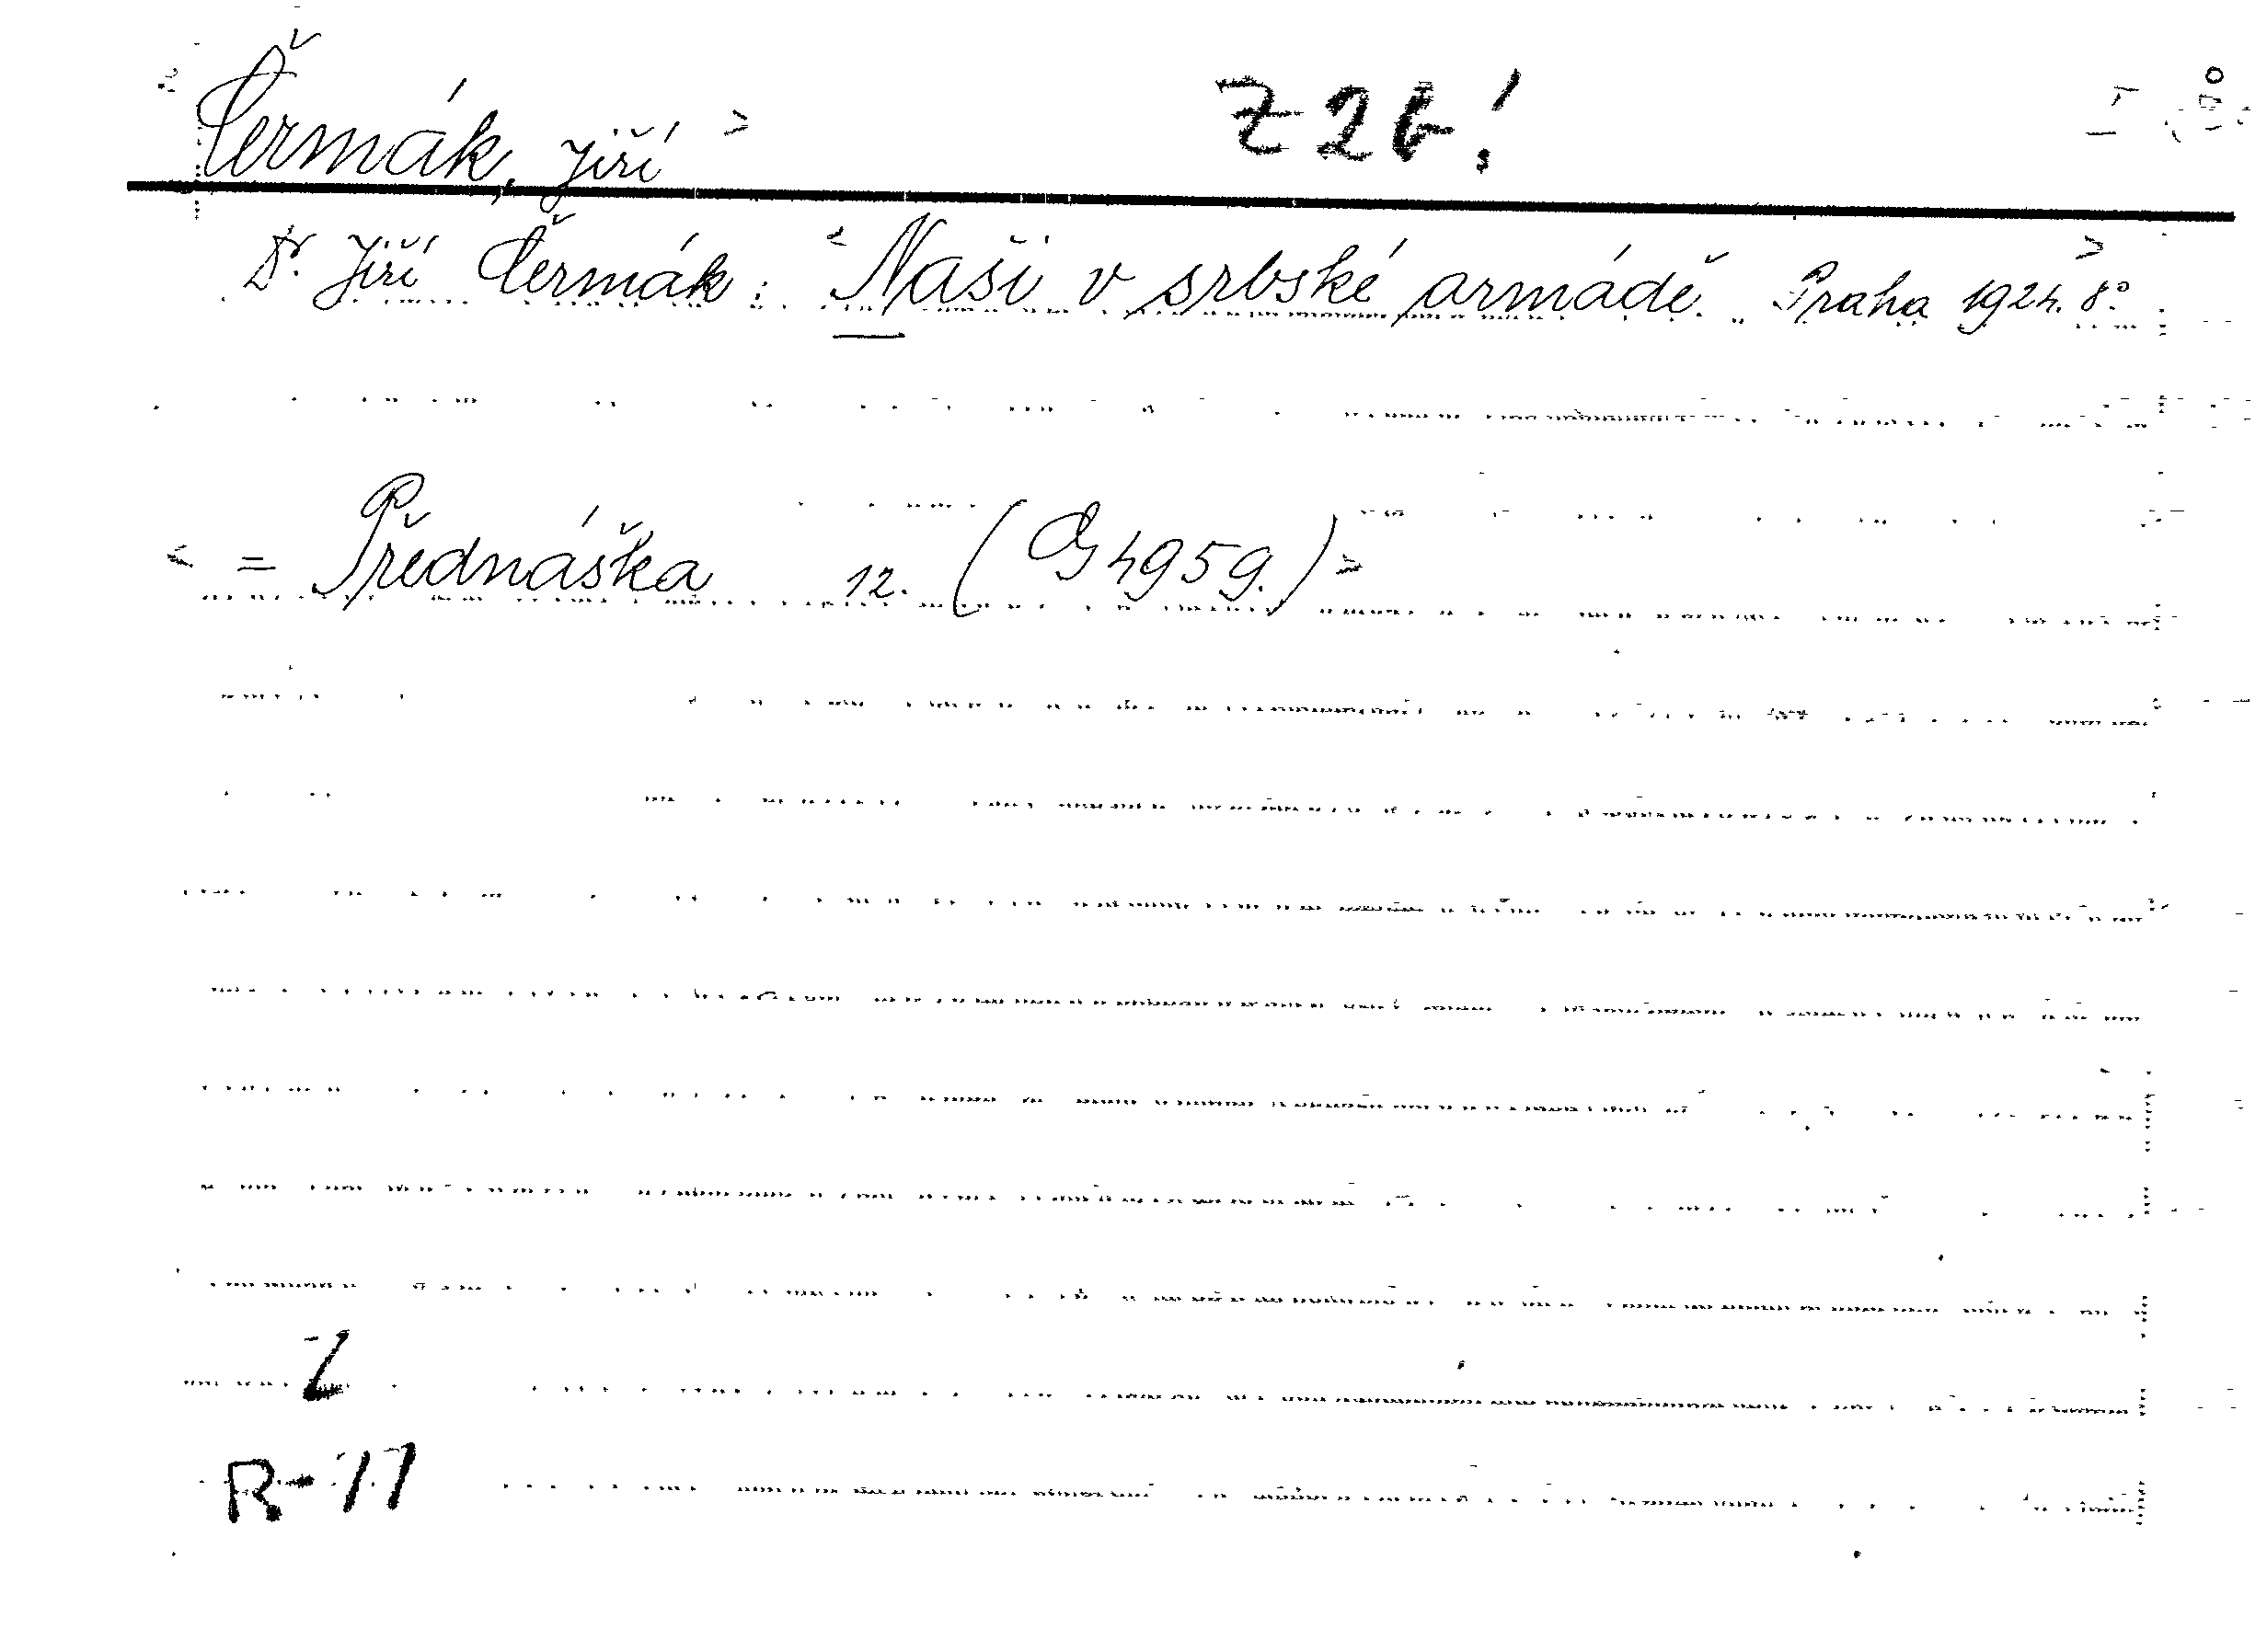 Čermák, Jiří > Z 2b!
< Dr. Jiří Čermák: < Naši v srbské armádě. Praha 1924. 8° >
< = Přednáška 12. (G 4959.) >
Z
R-11